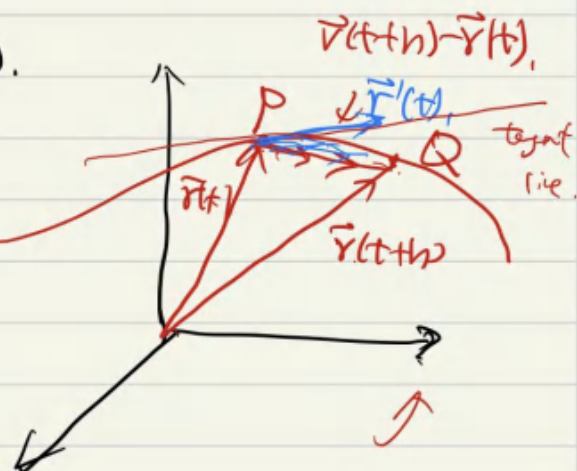 ).
r⃗(t+h)-r⃗(t).
P
r⃗'(t).
Q
tangent
line.
r⃗(t)
r⃗(t+h)